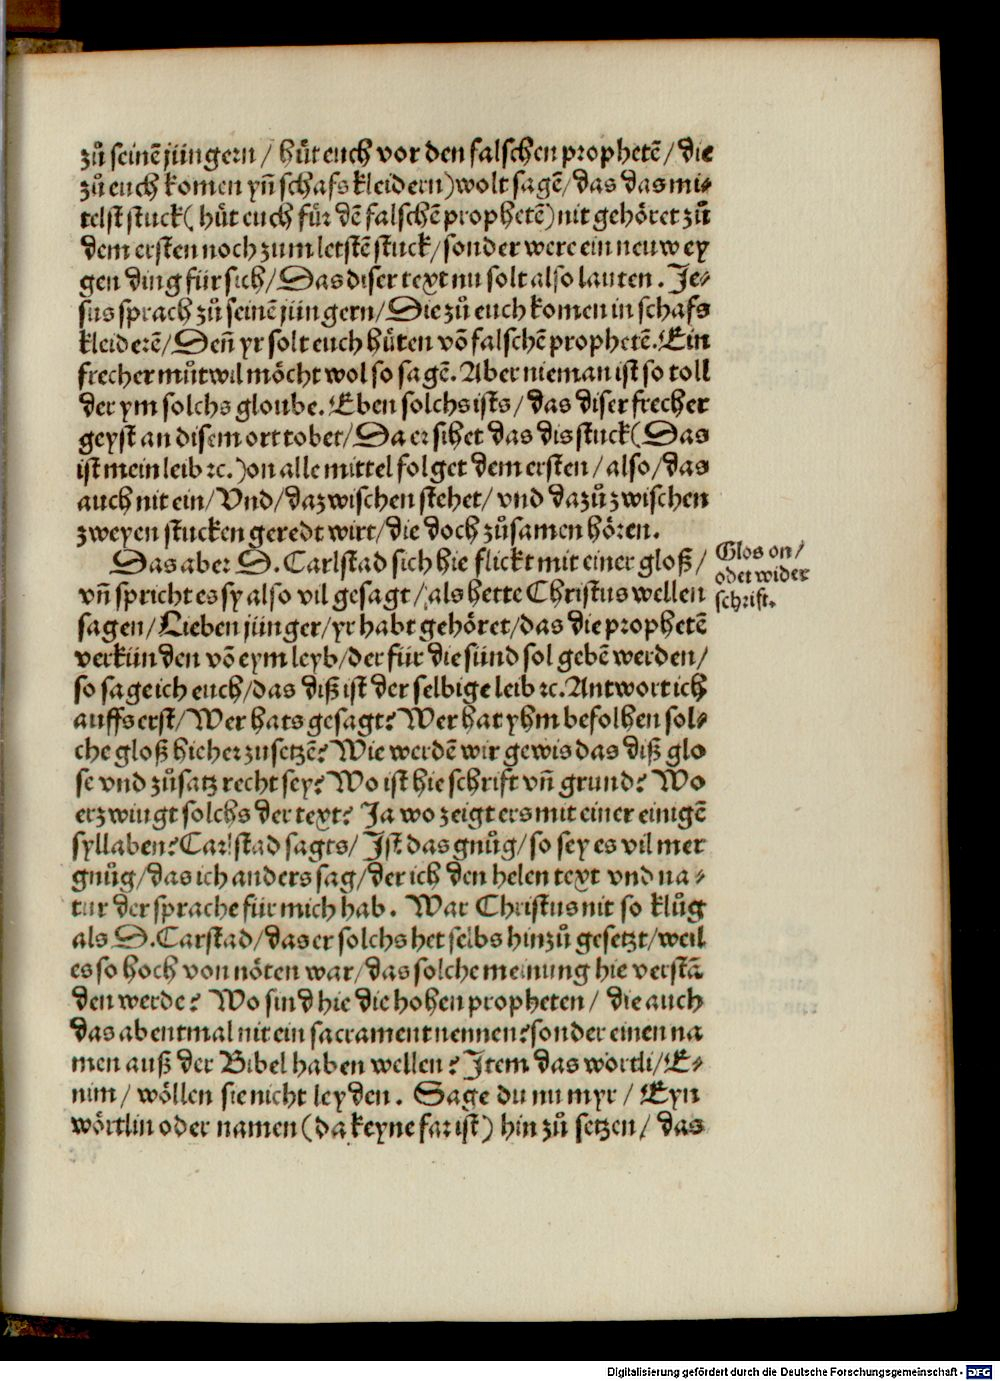 zů seinē jüngern / hüt euch vor den falschen prophetē / die
zů euch komen yñ schafs kleidern) wolt sagē / das das mi-
telst stuck ( hüt euch für dē falschē prophetē) nit gehöret zů
dem ersten noch zum letstē stuck / sonder were ein neuw ey
gen ding für sich / Das diser text nu solt also lauten . Je-
sus sprach zů seinē jüngern / Die zů euch komen in schafs
kleiderē / Deñ yr solt euch hüten võ falschē prophetē. Ein
frecher můtwil möcht wol so sagē. Aber nieman ist so toll
der ym solchs gloube. Eben solchs ists / das diser frecher
geyst an disem ort tobet / Da er sihet das dis stuck ( Das
ist mein leib ⁊c. ) on alle mittel folget dem ersten / also / das
auch nit ein / Vnd / dazwischen stehet / vnd dazů zwischen
zweyen stucken geredt wirt / die doch zůsamen hören .
Das aber D. Carlstad sich hie flickt mit einer gloß /
vñ spricht es sy also vil gesagt / als hette Christus wellen
sagen / Lieben jünger / yr habt gehöret / das die prophetē
verkünden võ eym leyb / der für die sünd sol gebē werden /
so sage ich euch / das diß ist der selbige leib ⁊c. Antwort ich
auffs erst / Wer hats gesagt? Wer hat yhm befolhen sol-
che gloß hieher zu setzē? Wie werdē wir gewis das diß glo
se vnd zůsatz recht sey? Wo ist hie schrift vñ grund? Wo
erzwingt solchs der text? Ja wo zeigt ers mit einer einigē
syllaben? Carlstad sagts / Ist das gnůg / so sey es vil mer
gnůg / das ich anders sag / der ich den helen text vnd na-
tur der sprache für mich hab . War Christus nit so klůg
als D. Carstad / das er solchs het selbs hinzů gesetzt / weil
es so hoch von nöten war / das solche meinung hie verstā
den werde? Wo sind hie die hohen propheten / die auch
das abentmal nit ein sacrament nennen? sonder einen na
men auß der Bibel haben wellen? Item das wortli / E-
nim / wöllen sie nicht leyden . Sage du nu myr / Eyn
wörtlin oder namen ( da keyne far ist ) hin zů setzen / das
Glos on /
oder wider
schrift.
Digitalisierung gefördert durch die Deutsche Forschungsgemeinschaft - DFG